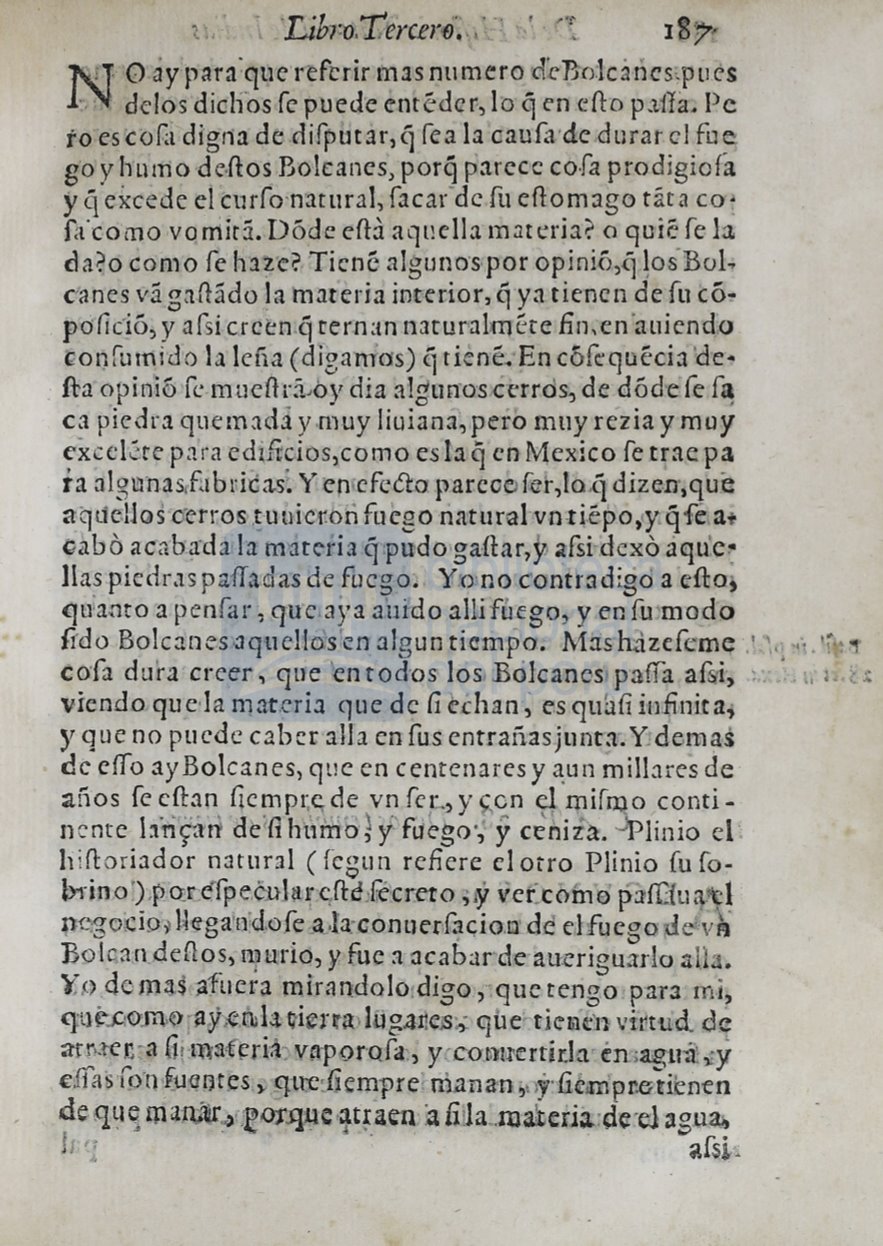 Libro Tercero. 187
NO ay para que referir mas numero de Bolcanes pues
delos dichos ſe puede entẽder, lo q̃ en eſto paſſa. Pe
ro es coſa digna de diſputar, q̃ ſea la cauſa de durar el fue
go y humo deſtos Bolcanes, porq̃ parece coſa prodigioſa
y q̃ excede el curſo natural, ſacar de ſu eſtomago tãta co-
ſa como vomitã. Dõde eſtà aquella materia? o quiẽ ſe la
da? o como ſe haze? Tienẽ algunos por opiniõ, q̃ los Bol-
canes vã gaſtãdo la materia interior, q̃ ya tienen de ſu cõ-
poſiciõ, y aſsi creen q̃ ternan naturalmẽte fin, en auiendo
conſumido la leña (digamos) q̃ tienẽ. En cõſequẽcia de-
ſta opiniõ ſe mueſtrã oy dia algunos cerros, de dõde ſe ſa
ca piedra quemada y muy liuiana, pero muy rezia y muy
excelẽte para edificios, como es la q̃ en Mexico ſe trae pa
ra algunas fabricas. Y en efecto parece ſer, lo q̃ dizen, que
aquellos cerros tuuieron fuego natural vn tiẽpo, y q̃ ſe a-
cabò acabada la materia q̃ pudo gaſtar, y aſsi dexò aque-
llas piedras paſſadas de fuego. Yo no contradigo a eſto,
quanto a penſar, que aya auido alli fuego, y en ſu modo
ſido Bolcanes aquellos en algun tiempo. Mas hazeſeme
coſa dura creer, que en todos los Bolcanes paſſa aſsi,
viendo que la materia que de ſi echan, es quaſi infinita,
y que no puede caber alla en ſus entrañas junta. Y demas
de eſſo ay Bolcanes, que en centenares y aun millares de
años ſe eſtan ſiempre de vn ſer, y con el miſmo conti-
nente lançan de ſi humo, y fuego, y ceniza. Plinio el
hiſtoriador natural (ſegun refiere el otro Plinio ſu ſo-
brino) por eſpecular eſte ſecreto, y ver como paſſaua el
negocio, llegandoſe a la conuerſacion de el fuego de vn
Bolcan deſtos, murio, y fue a acabar de aueriguarlo alla.
Yo de mas afuera mirandolo digo, que tengo para mi,
que como ay en la tierra lugares, que tienen virtud de
atraer a ſi materia vaporoſa, y conuertirla en agua, y
eſſas ſon fuentes, que ſiempre manan, y ſiempre tienen
de que manar, porque atraen a ſi la materia de el agua,
aſsi